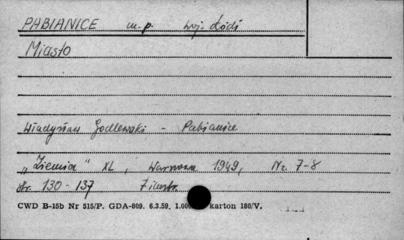 PABIANICE m.p. woj. Łódź
Miasto
Władysław Godlewski - Pabianice
"Ziemia" XL, Warszawa 1949, Nr. 7-8
str. 130-137 7 ilustr.
CWD B-15b Nr 515/P. GDA-809. 6.3.59. 1.000 karton 180/V.